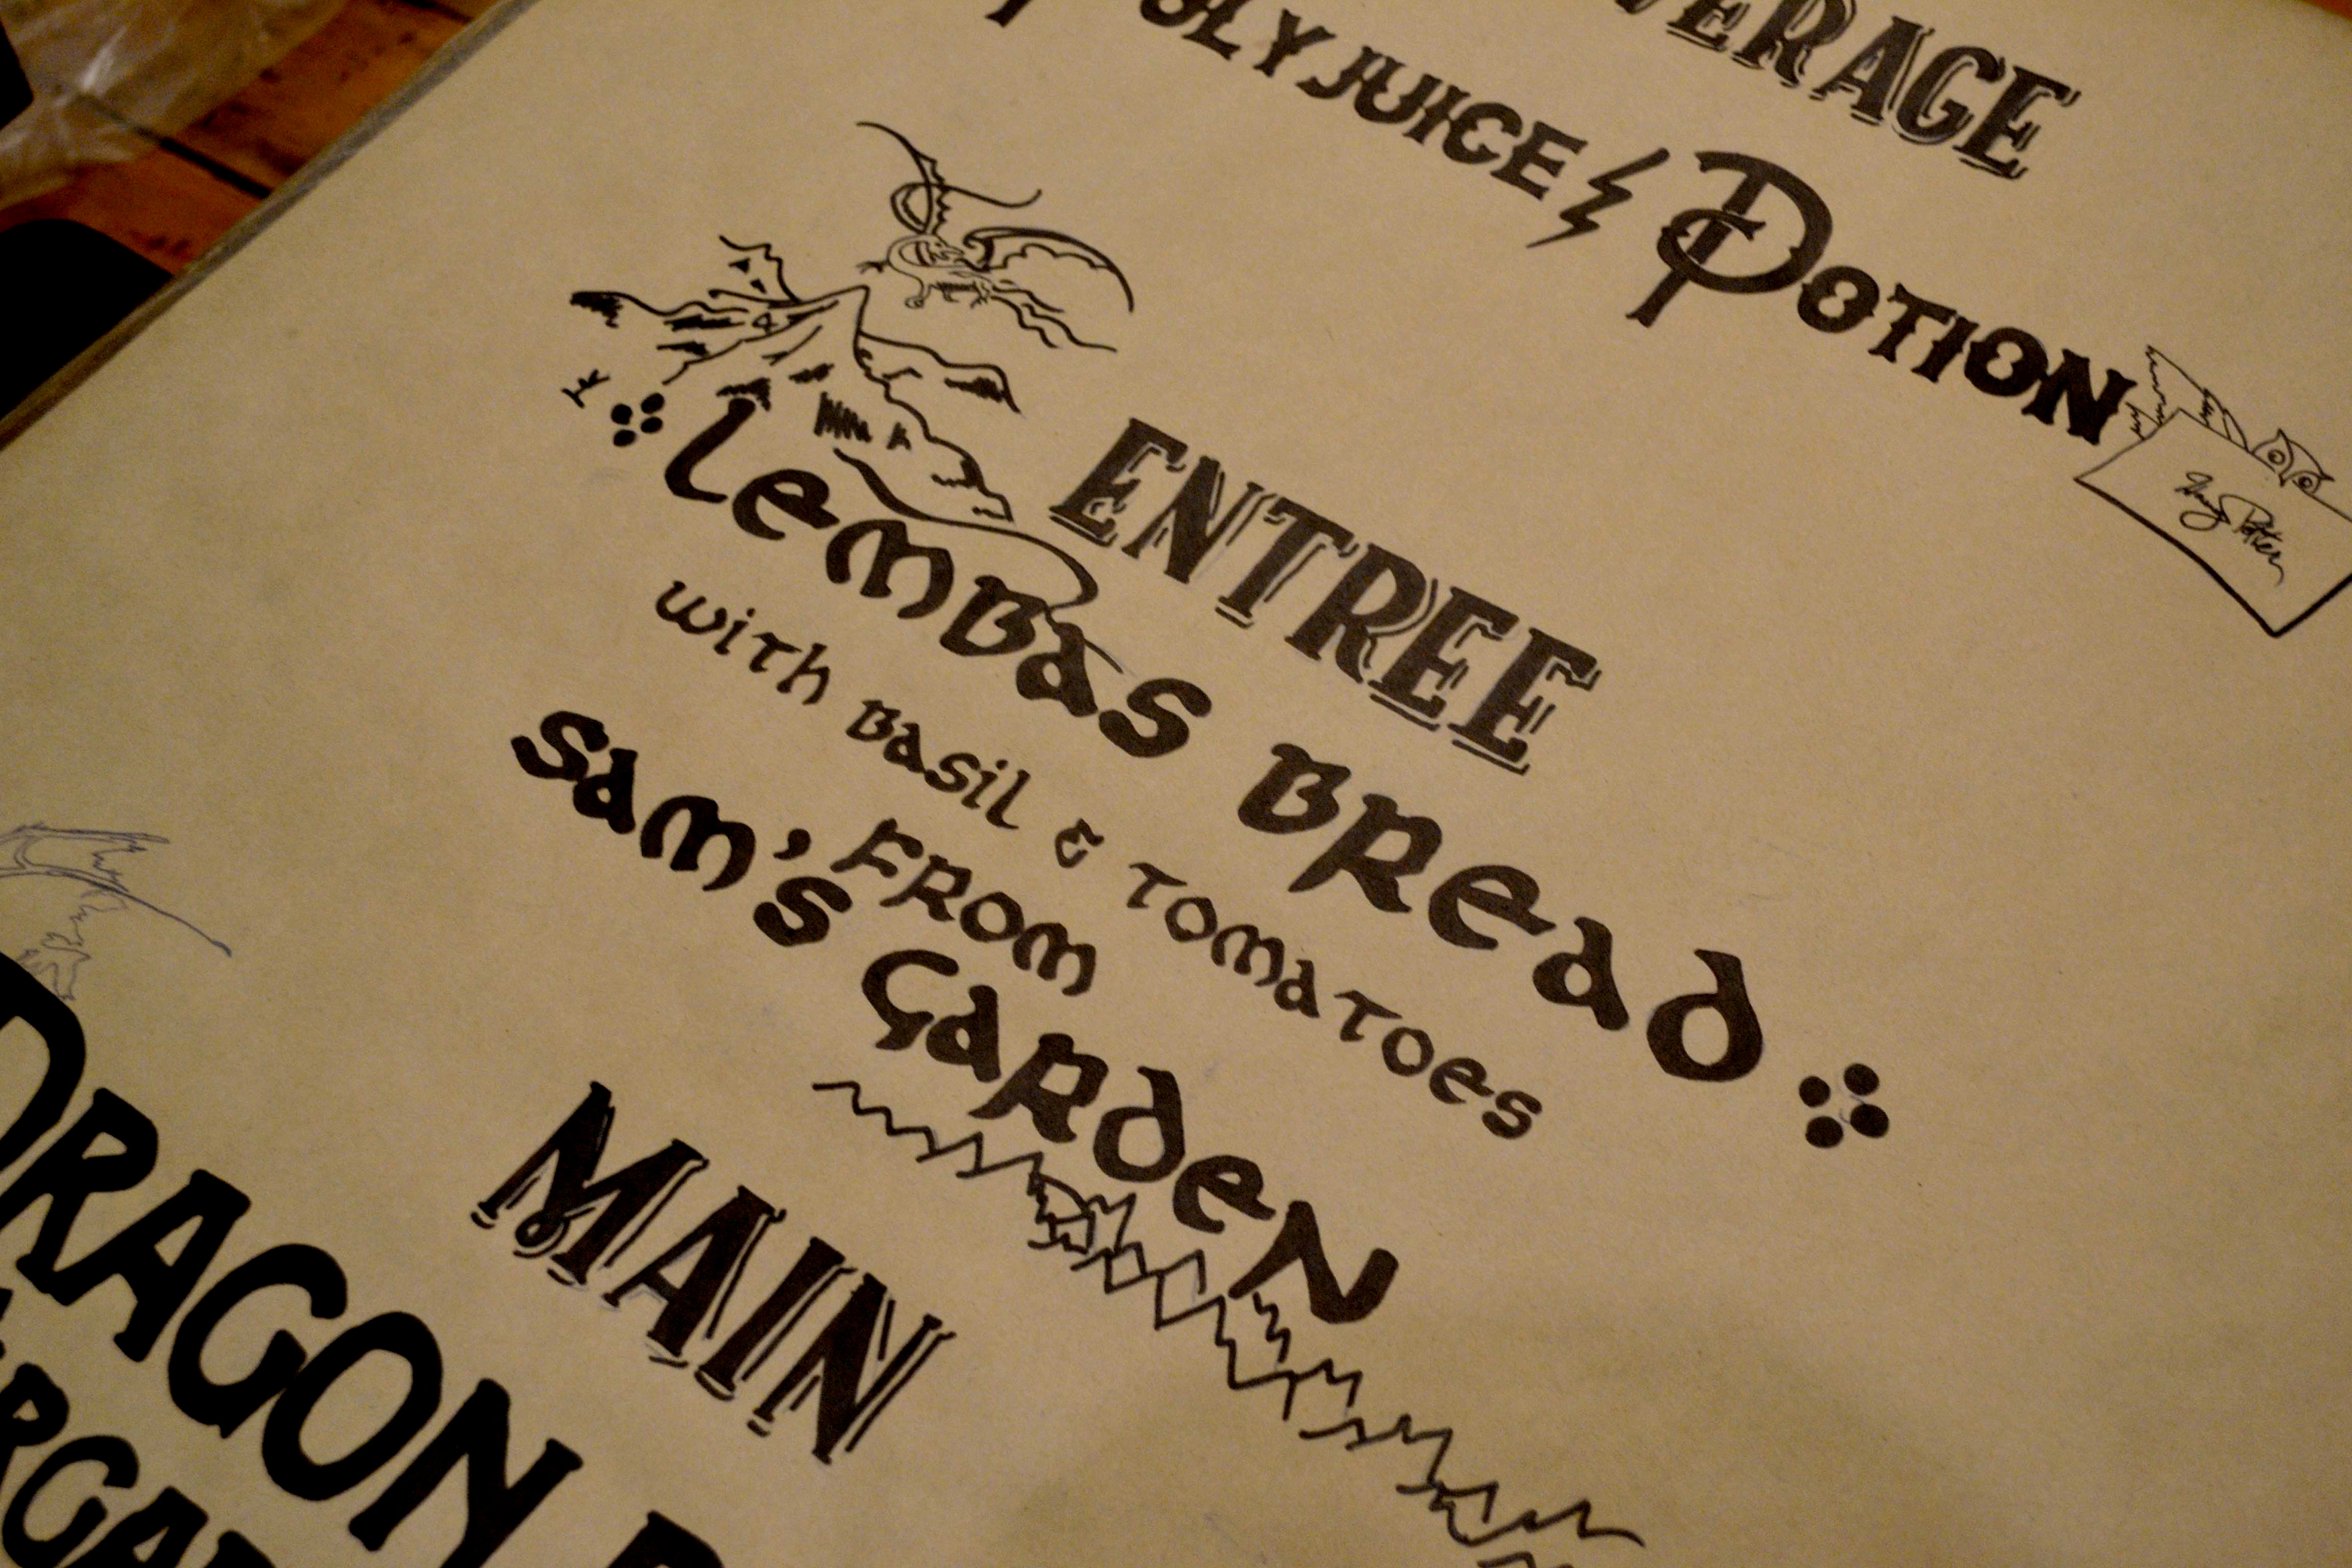 VERAGE
LYJUICE POTION
Harry Potter
ENTREE
Lembas Bread
with Basil & Tomatoes
FROM
Sam's Garden
MAIN
DRAGON